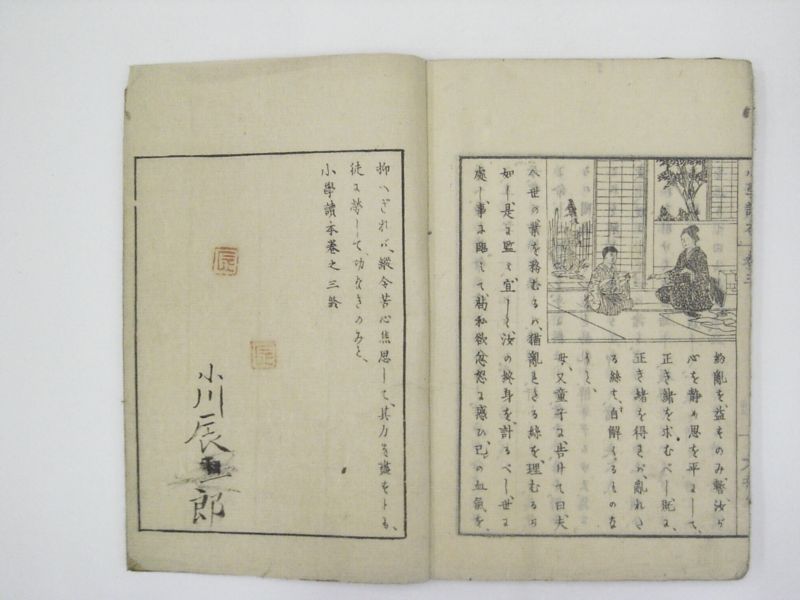 小學讀本 卷三
紛亂を益すのみ、暫汝が
心を靜め思を平にして、
正き緒を求むべし、既に
正き緒を得きが、亂れた
る絲も、自解くるものな
りと、
母、又童子に告げて曰、夫
人世の業を務むるハ、猶亂れたる絲を、理むるが
如し、是に監て宜しく汝の終身を、計るべし、世に
處し事に臨して、私欲忿怒に惑ひ、己の血氣を、
抑へざれバ、縱令苦心焦思して、其力を盡すとも、
徒に勞して、功なきのみと、
小學讀本卷之三終
小川辰郎